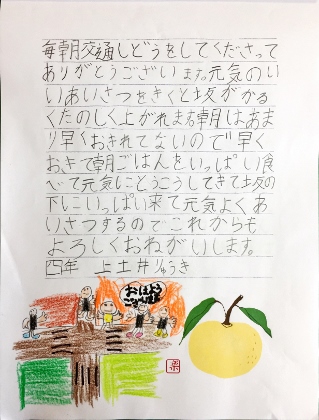 毎朝交通しどうをしてくださって
ありがとうございます。元気のい
いあいさつをきくと坂がかる
くたのしく上がれます。朝はあま
り早くおきれてないので早く
おきて朝ごはんをいっぱい食
べて元気にとうこうしてきて坂の
下にいっぱい来て元気よくあ
いさつするのでこれからも
よろしくおねがいします。
四年 上土井りゅうき
おはよう
ございます